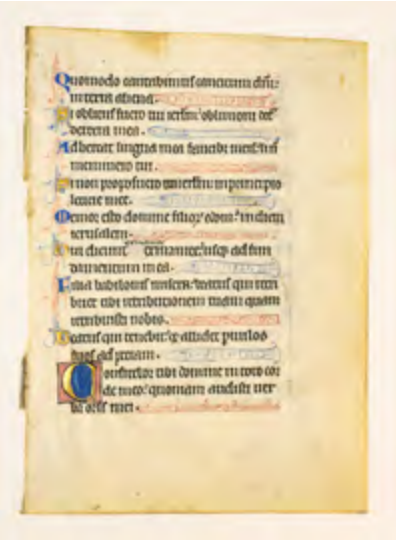 Quomodo cantabimus canticum dñi:
in terra aliena.
Si oblitus fuero tui ierlm: oblivioni det
dextera mea.
Adhereat lingua mea faucibus meis: si n
meminero tui.
Si non proposuero ierlm: in principio
leticie mee.
Memor esto domine filior edom: in diem
ierusalem.
Qui dicunt exinanite: usq ad fun
damentum in ea.
Filia babilonis misera: beatus qui retri
buet tibi retributionem tuam quam
retribuisti nobis.
Beatus qui tenebit: et allidet parvulos
tuos ad petram.
Confitebor tibi domine in toto cor
de meo: quoniam audisti ver
ba oris mei.